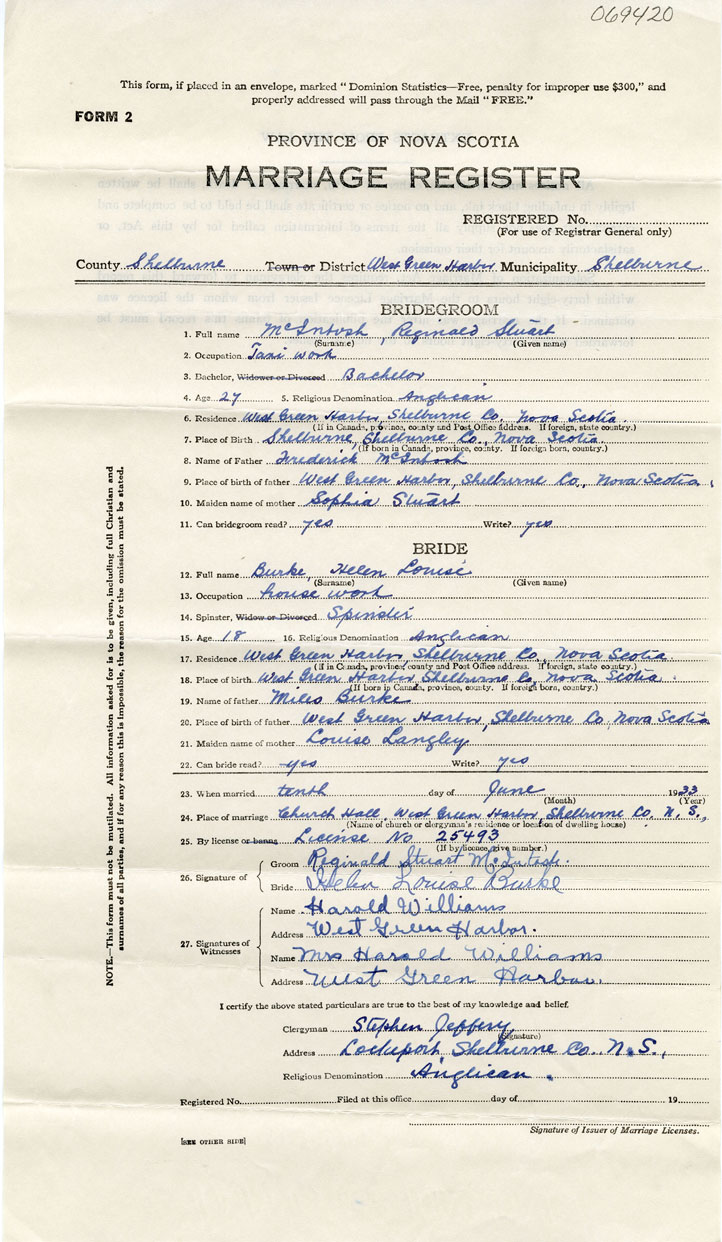 069420
This form, if placed in an envelope, marked "Dominion Statistics—Free, penalty for improper use $300," and
properly addressed will pass through the Mail "FREE."
FORM 2
PROVINCE OF NOVA SCOTIA
MARRIAGE REGISTER
REGISTERED No.
(For use of Registrar General only)
County Shelburne Town or District West Green Harbor Municipality Shelburne
BRIDEGROOM
1. Full name McIntosh, Reginald Stuart
(Surname) (Given name)
2. Occupation Taxi work
3. Bachelor, Widower or Divorced Bachelor
4. Age 27 5. Religious Denomination Anglican
6. Residence West Green Harbor, Shelburne Co., Nova Scotia
(If in Canada, province, county and Post Office address. If foreign, state country.)
7. Place of Birth Shelburne, Shelburne Co., Nova Scotia
(If born in Canada, province, county. If foreign born, country.)
8. Name of Father Frederick McIntosh
9. Place of birth of father West Green Harbor, Shelburne Co., Nova Scotia.
10. Maiden name of mother Sophia Stuart
11. Can bridegroom read? yes Write? yes
BRIDE
12. Full name Burke, Helen Louise
(Surname) (Given name)
13. Occupation house work
14. Spinster, Widow or Divorced Spinster
15. Age 18 16. Religious Denomination Anglican
17. Residence West Green Harbor, Shelburne Co., Nova Scotia
(If in Canada, province, county and Post Office address. If foreign, state country.)
18. Place of birth West Green Harbor, Shelburne Co, Nova Scotia.
(If born in Canada, province, county. If foreign born, country.)
19. Name of father Miles Burke
20. Place of birth of father West Green Harbor, Shelburne Co, Nova Scotia
21. Maiden name of mother Louise Langley
22. Can bride read? yes Write? yes
23. When married tenth day of June 1933
(Month) (Year)
24. Place of marriage Church Hall, West Green Harbor, Shelburne Co. N.S.,
(Name of church or clergyman's residence or location of dwelling house)
25. By license or banns License No 25493
(If by licence, give number.)
26. Signature of Groom Reginald Stuart McIntosh.
Bride Helen Louise Burke
27. Signatures of Witnesses Name Harold Williams
Address West Green Harbor.
Name Mrs Harold Williams
Address West Green Harbor.
I certify the above stated particulars are true to the best of my knowledge and belief.
Clergyman Stephen Jeffery
(Signature)
Address Lockeport, Shelburne Co. N.S.,
Religious Denomination Anglican.
Registered No. Filed at this office day of 19
Signature of Issuer of Marriage Licenses.
[SEE OTHER SIDE]
NOTE.—This form must not be mutilated. All information asked for is to be given, including full Christian and
surnames of all parties, and if for any reason this is impossible, the reason for the omission must be stated.